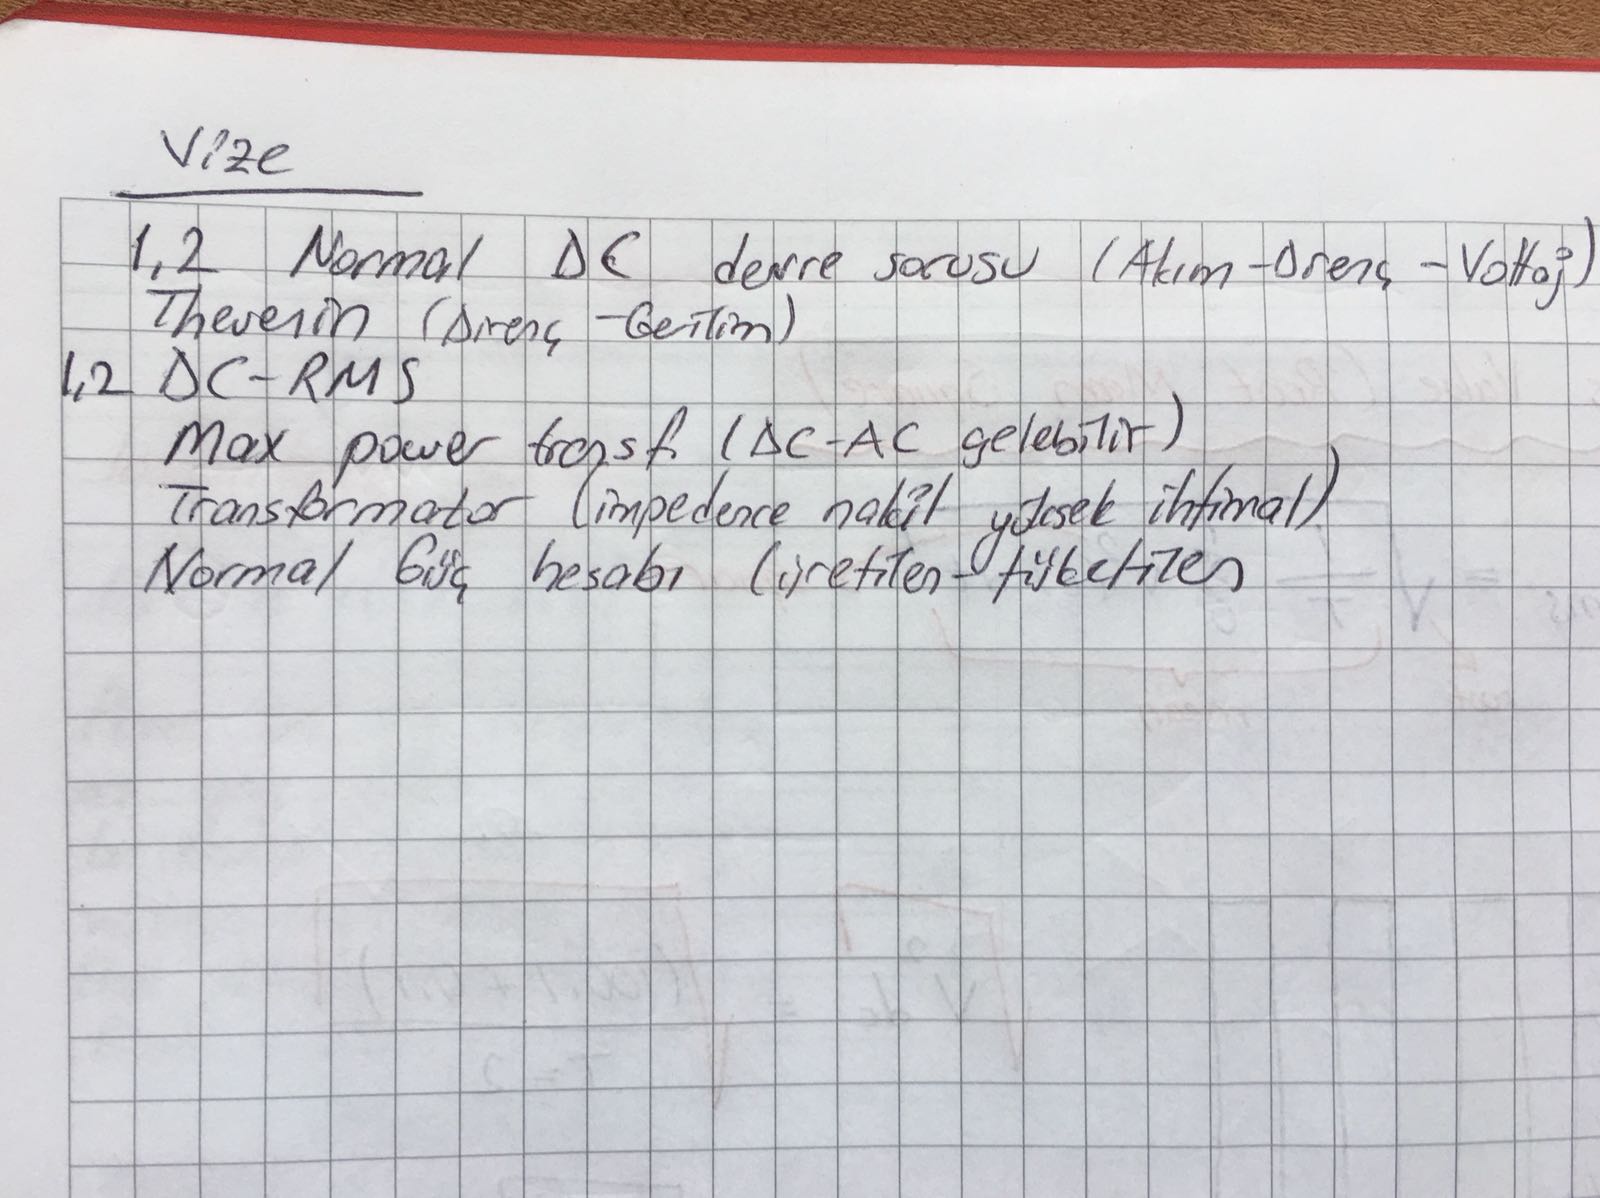 Vize
1,2 Normal DC devre sorusu (Akım-Direnç-Voltaj)
Thevenin (Direnç-Gerilim)
1,2 DC-RMS
Max power transf. (DC-AC gelebilir)
Transformator (impedence nakil yüksek ihtimal)
Normal Güç hesabı (üretilen-tüketilen